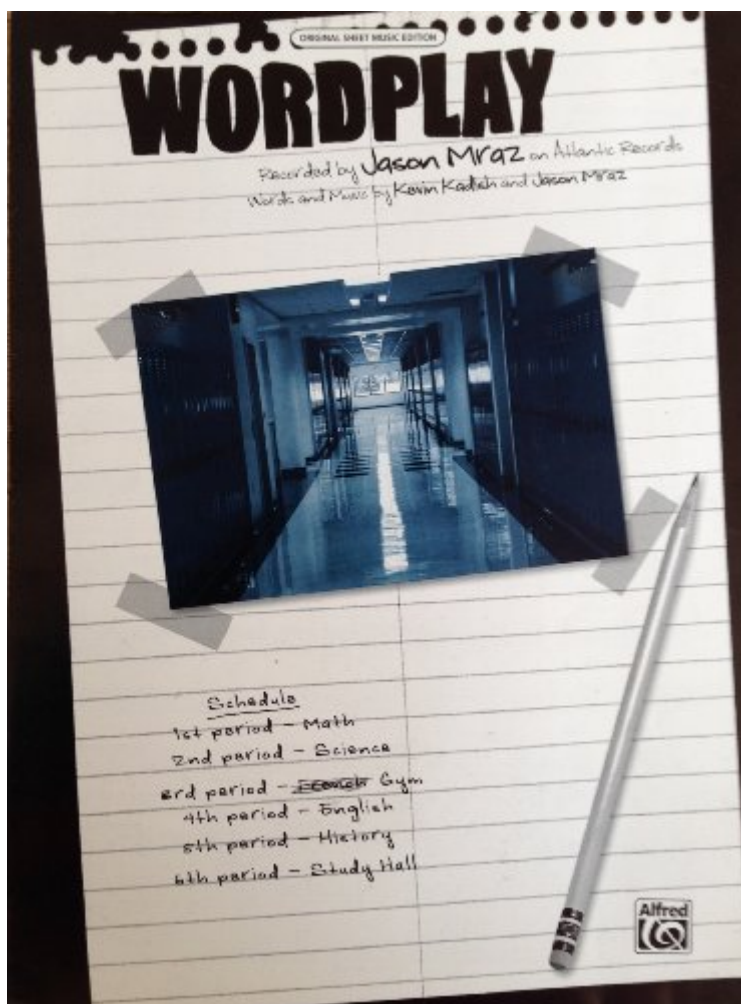 ORIGINAL SHEET MUSIC EDITION
WORDPLAY
Recorded by Jason Mraz on Atlantic Records
Words and Music by Kevin Kadish and Jason Mraz
Schedule
1st period – Math
2nd period – Science
3rd period – French Gym
4th period – English
5th period – History
6th period – Study Hall
Alfred